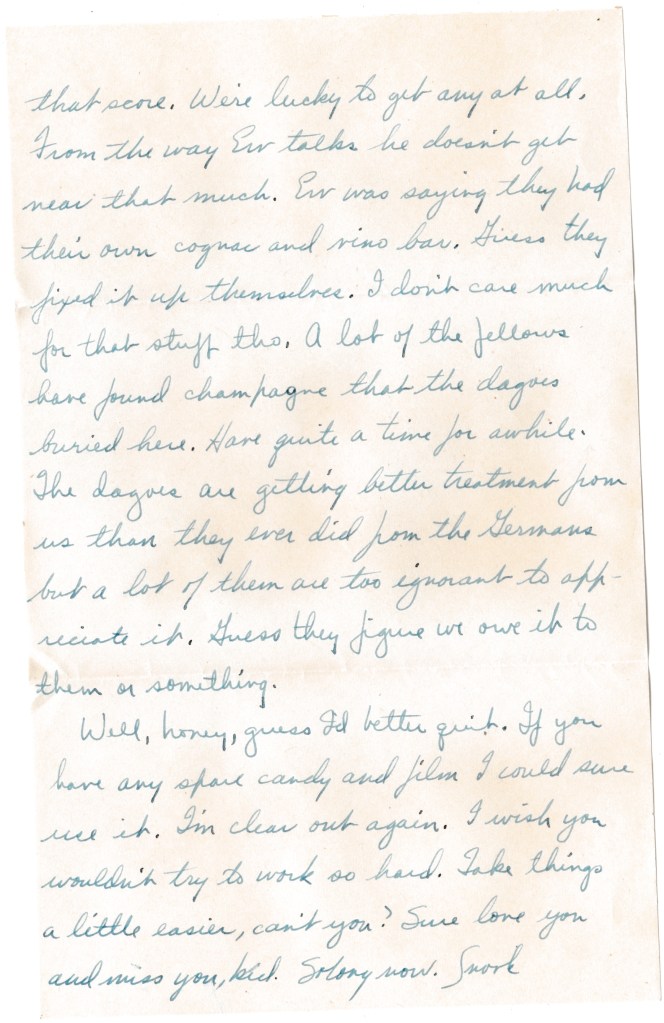 that score. We're lucky to get any at all.
From the way Erv talks he doesn't get
near that much. Erv was saying they had
their own cognac and vino bar. Guess they
fixed it up themselves. I don't care much
for that stuff tho. A lot of the fellows
have found champagne that the dagoes
buried here. Have quite a time for awhile.
The dagoes are getting better treatment from
us than they ever did from the Germans
but a lot of them are too ignorant to app-
reciate it. Guess they figure we owe it to
them or something.
Well, honey, guess I'd better quit. If you
have any spare candy and film I could sure
use it. I'm clear out again. I wish you
wouldn't try to work so hard. Take things
a little easier, can't you? Sure love you
and miss you, kid. So long now.